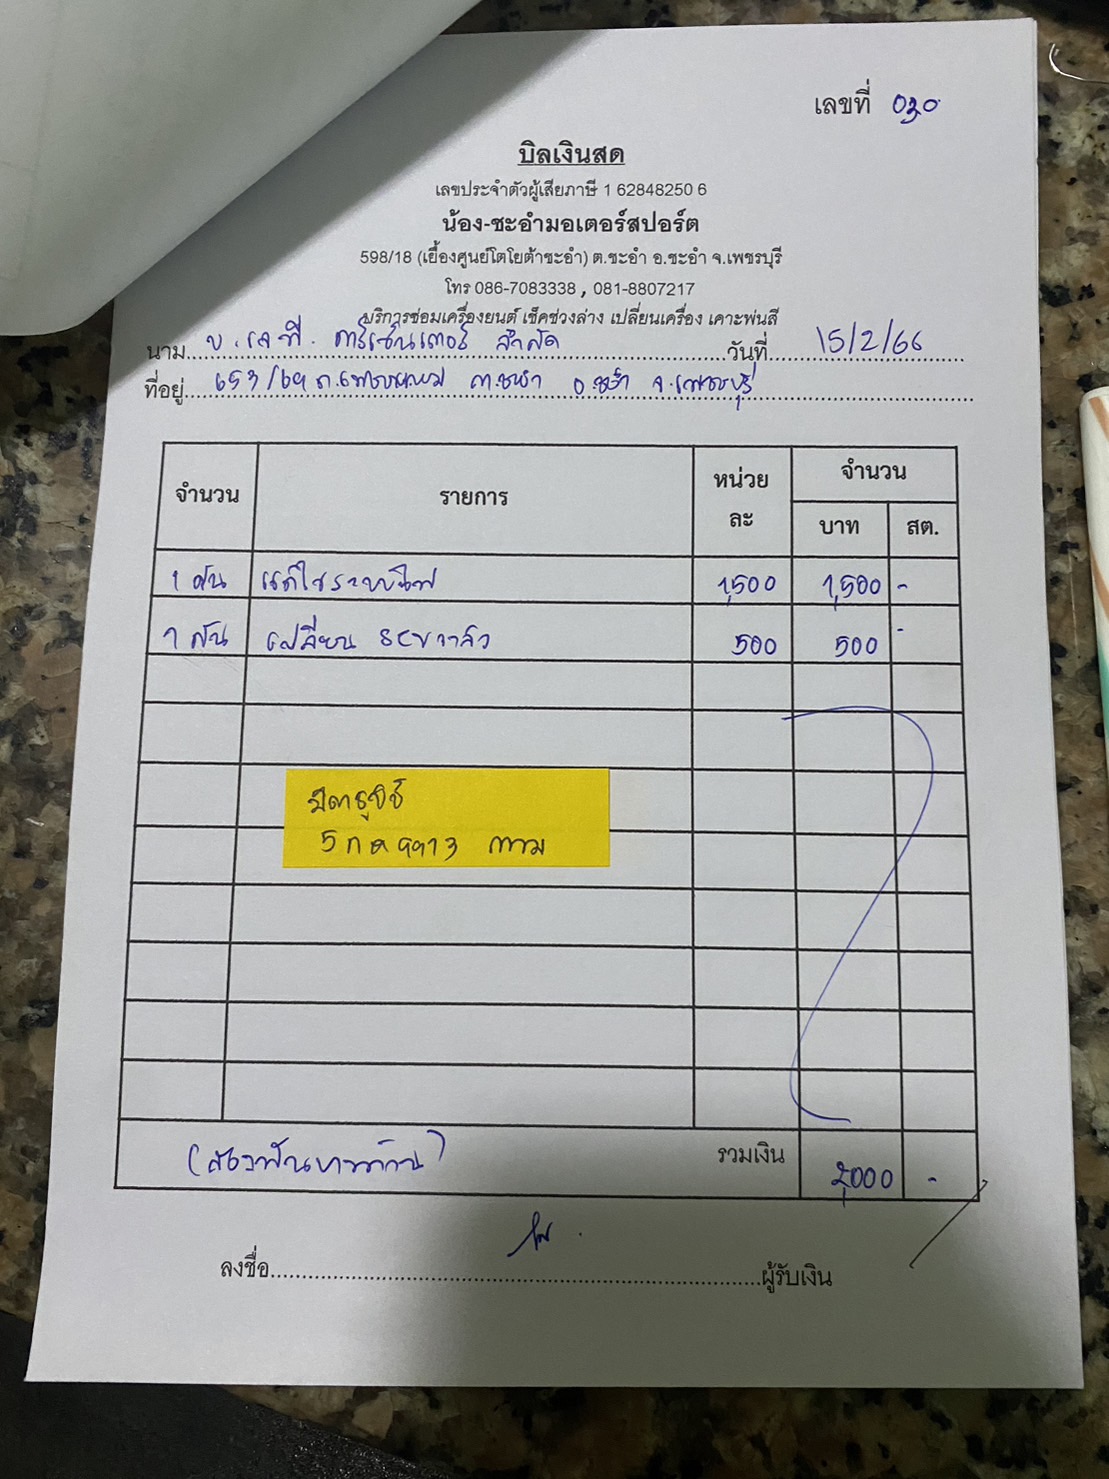 เลขที่ 020
บิลเงินสด
เลขประจำตัวผู้เสียภาษี 1 62848250 6
น้อง-ชะอำมอเตอร์สปอร์ต
598/18 (เยื้องศูนย์โตโยต้าชะอำ) ต.ชะอำ อ.ชะอำ จ.เพชรบุรี
โทร 086-7083338 , 081-8807217
บริการซ่อมเครื่องยนต์ เช็คช่วงล่าง เปลี่ยนเครื่อง เคาะพ่นสี
นาม บ. เจ.ที. คาร์เซ็นเตอร์ จำกัด วันที่ 15/2/66
ที่อยู่ 653/69 ถ.เพชรเกษม ต.ชะอำ อ.ชะอำ จ.เพชรบุรี
จำนวน รายการ หน่วยละ จำนวน
บาท สต.
1 คัน แก้ไขระบบไฟ 1,500 1,500 -
1 คัน เปลี่ยน วาล์ว 500 500 -
มิตซูบิชิ
5 กค 9913 กทม
(สองพันบาทถ้วน) รวมเงิน 2,000 -
ลงชื่อ ผู้รับเงิน